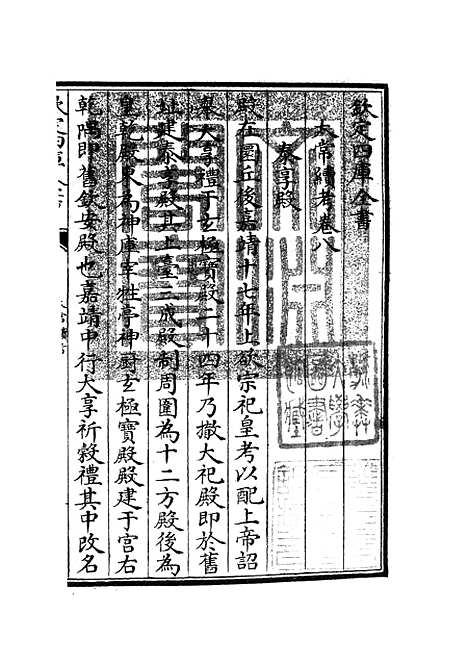 欽定四庫全書
太常續考卷八
泰享殿
殿在圜丘後嘉靖十七年上欲宗祀皇考以配上帝詔
舉大享禮于玄極寶殿二十四年乃撤大祀殿即於舊
址建泰享殿其上臺二成殿制周圍為十二方殿後為
皇乾殿東為神庫宰牲亭神厨玄極寶殿殿建于宫右
乾隅即舊欽安殿也嘉靖中行大享祈穀禮其中改名